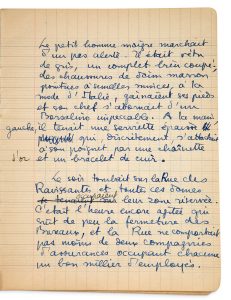 Le petit homme maigre marchait
d'un pas alerte - il était vêtu
de gris, un complet bien coupé,
des chaussures de daim marron
pointues à semelles minces, à la
mode d'Italie, gainaient ses pieds
et son chef s'abornait d'un
Borsalino impeccable. A la main
gauche, il tenait une serviette épaisse
qui, discrètement, s'attachait
à son poignet par une chaînette
d'or et un bracelet de cuir.
Le soir tombait sur la Rue des
Ravissantes et toutes ces dames
occupaient
leur zone réservée.
C'était l'heure encore agitée qui
suit de peu la fermeture des
Bureaux, et la Rue ne comportait
pas moins de deux compagnies
d'assurances occupant chacune
un bon millier d'employés.